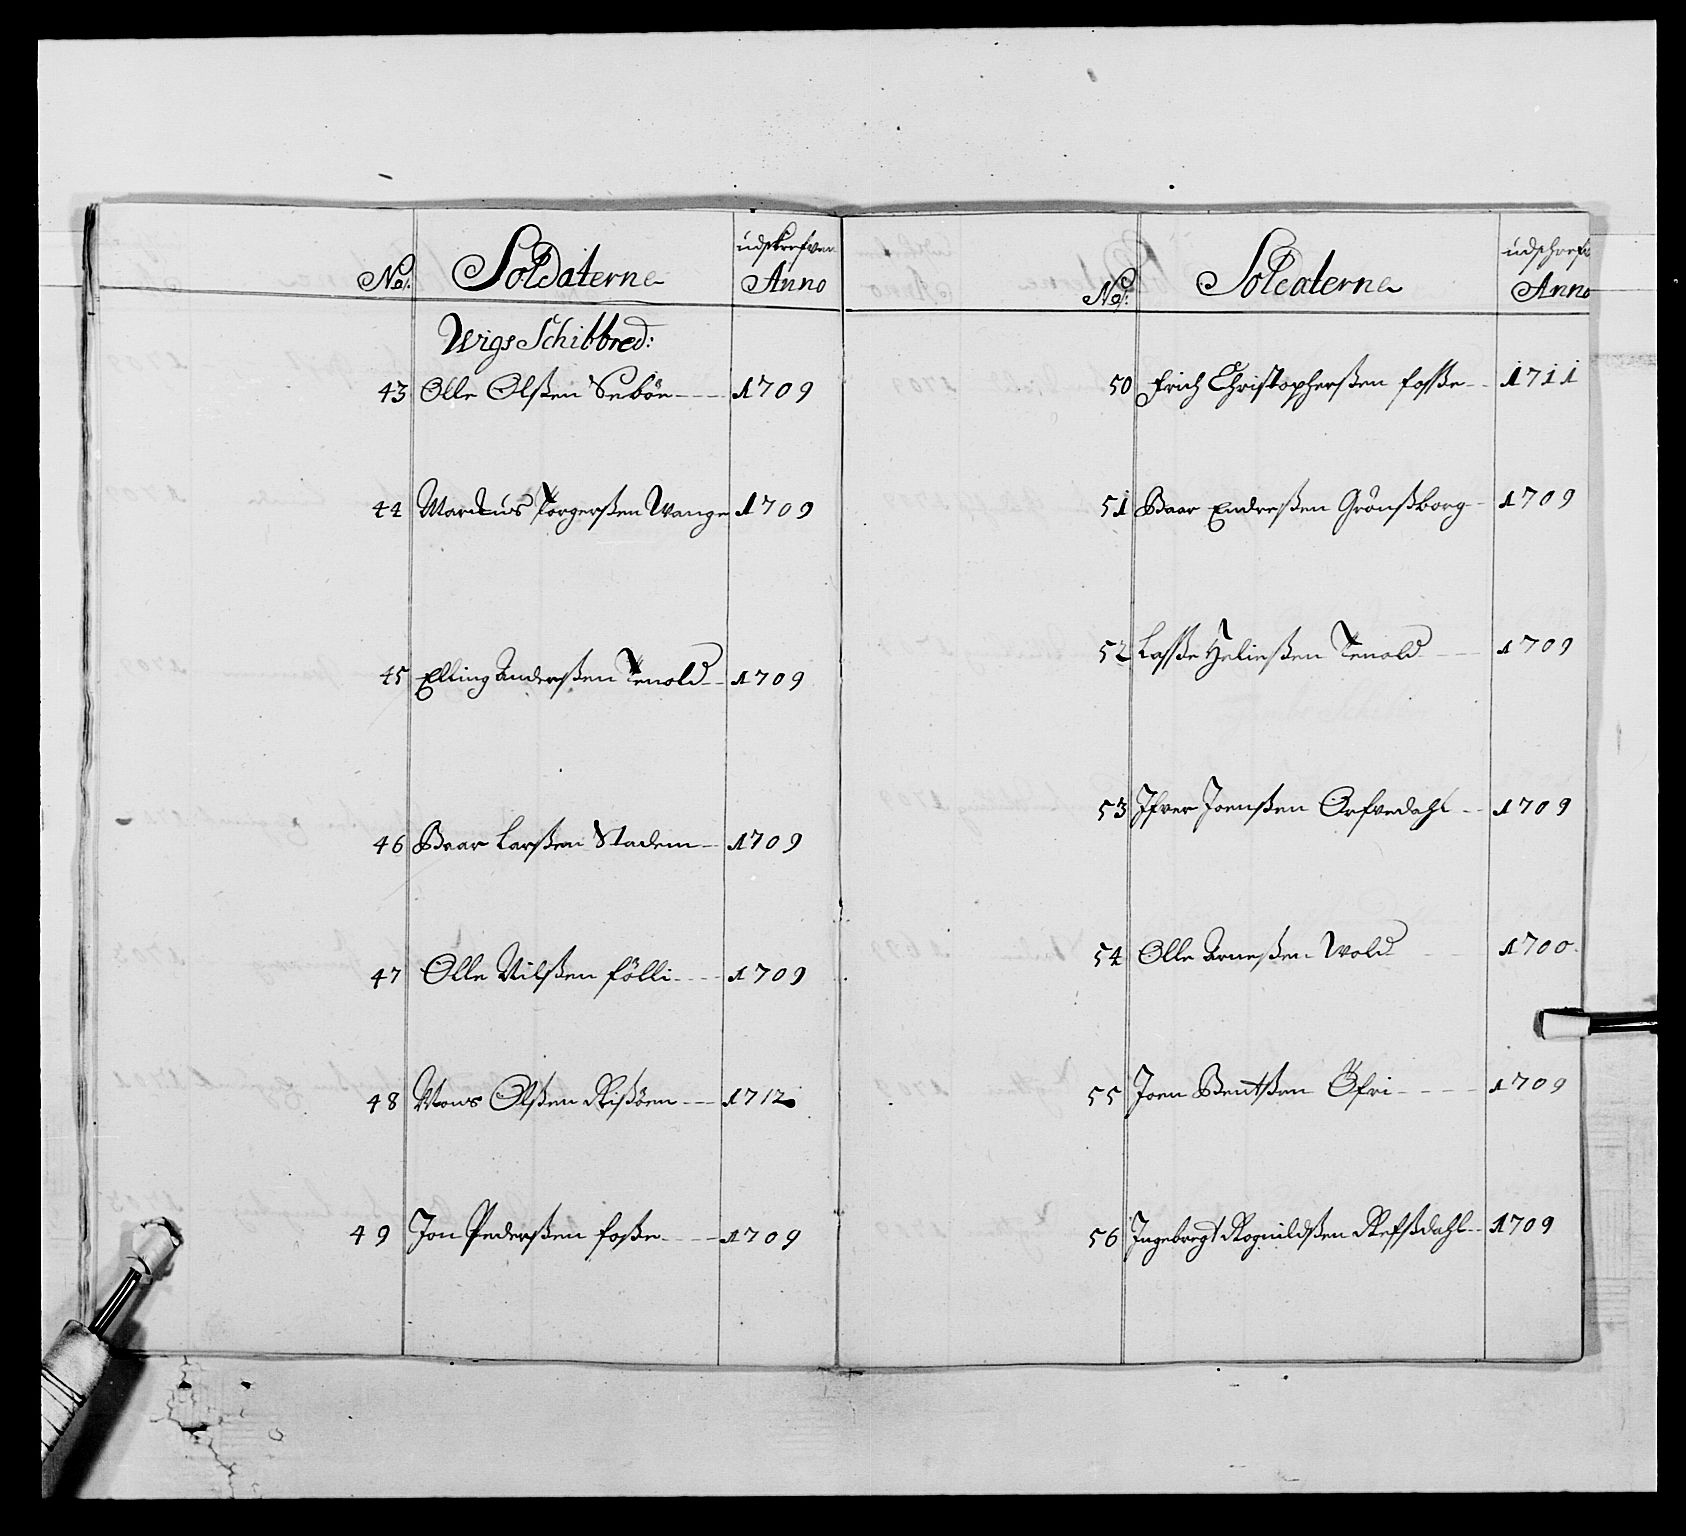 No: Soldaterne udskrefven Anno
Wigs Schibbred:
43 Olle Olßen Sebøe 1709
44 Marcus Torgerßen Wange 1709
45 Elling Anderßen Tenold 1709
46 Baar Larßen Stadem 1709
47 Olle Nilßen fölli 1709
48 Mons Olßen Rißöen 1712
49 Jon Pederßen foße 1709
No: Soldaterne udschrefv Anno
50 Erich Christopherßen foßße 1711
51 Baar Endreßen Grönßborg 1709
52 Laßße Heließen Tenold 1709
53 Ifver Joenßen Orfvedahl 1709
54 Olle Arneßen Wold 1700
55 Joen Bentßen Öfri 1709
56 Ingebregt Rognildßen Refßdahl 1709